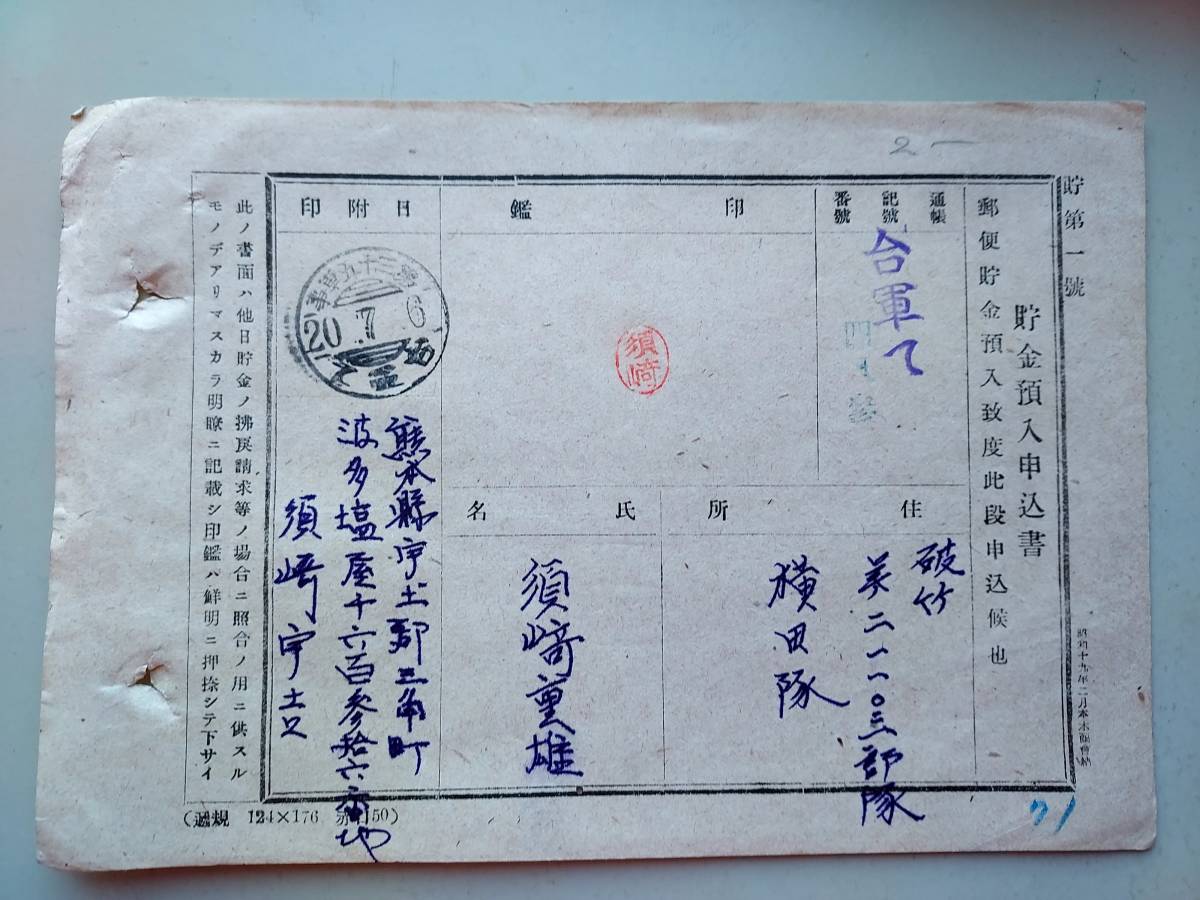 2—
貯第一號
貯金預入申込書
郵便貯金預入致度此段申込候也
通帳
記號
番號
台軍て
印鑑
須崎
日附印
第三十五軍事
20.7.6
住所
破竹
美二一一〇三部隊
横田隊
氏名
須崎重雄
熊本縣宇土郡三角町
波多塩屋千六百参拾六番地
須崎宇吉
此ノ書面ハ他日貯金ノ拂戻請求等ノ場合ニ照合ノ用ニ供スル
モノデアリマスカラ明瞭ニ記載シ印鑑ハ鮮明ニ押捺シテ下サイ
昭和十九年二月
(遞規 124×176
50)
71